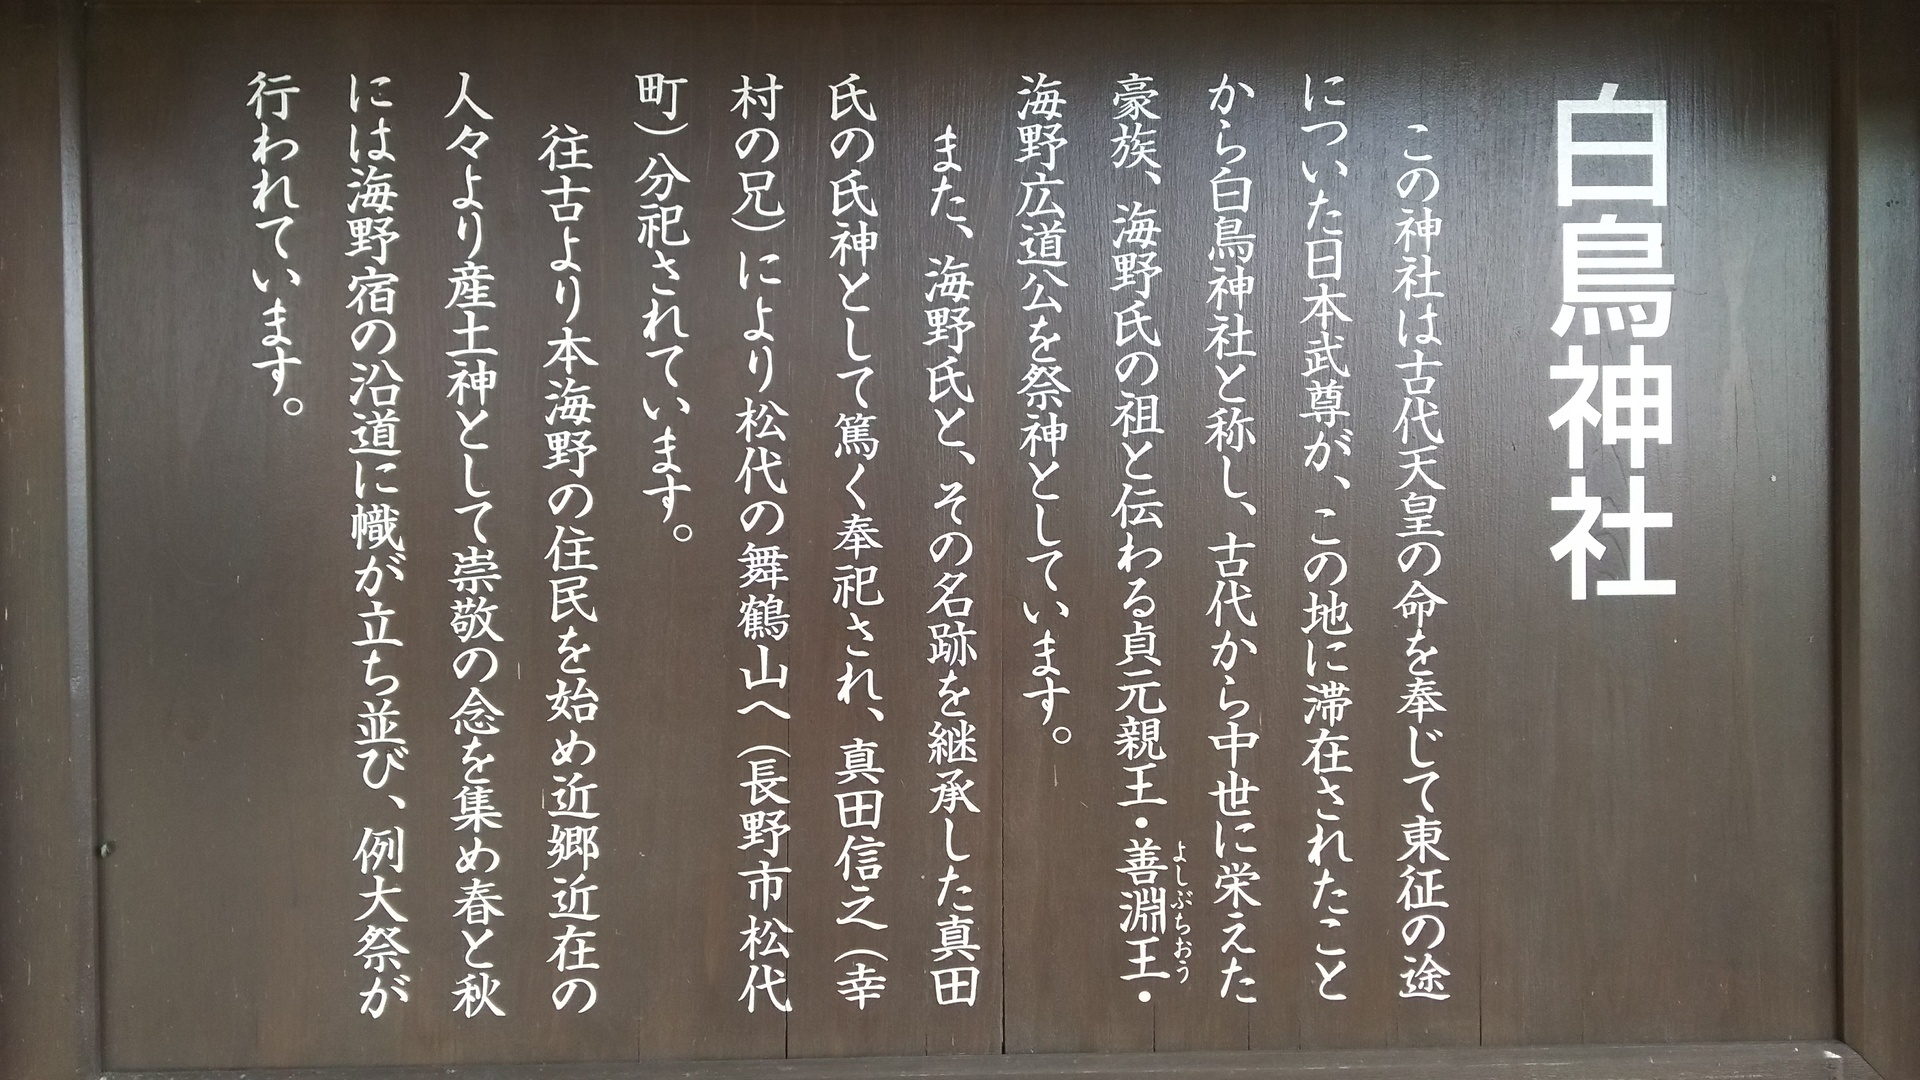 白鳥神社
この神社は古代天皇の命を奉じて東征の途
についた日本武尊が、この地に滞在されたこと
から白鳥神社と称し、古代から中世に栄えた
豪族、海野氏の祖と伝わる貞元親王・善淵王・
よしぶちおう
海野広道公を祭神としています。
また、海野氏と、その名跡を継承した真田
氏の氏神として篤く奉祀され、真田信之（幸
村の兄）により松代の舞鶴山へ（長野市松代
町）分祀されています。
往古より本海野の住民を始め近郷近在の
人々より産土神として崇敬の念を集め春と秋
には海野宿の沿道に幟が立ち並び、例大祭が
行われています。